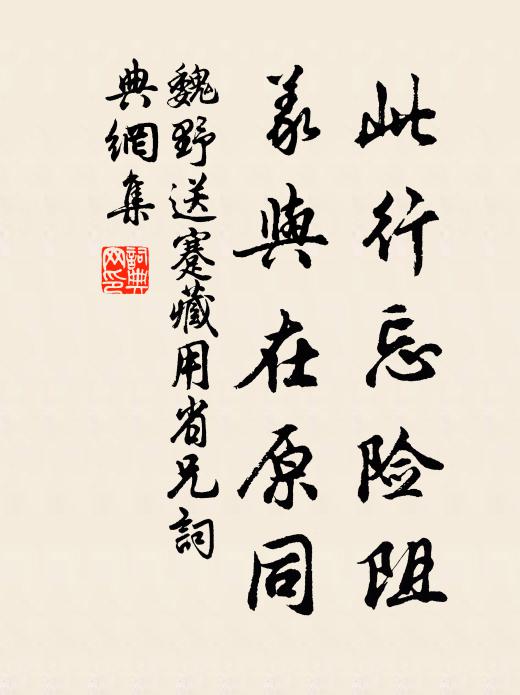 此行忘险阻
義與在原同
魏野送蹇藏用省兄詞
典網集
詞典
网印